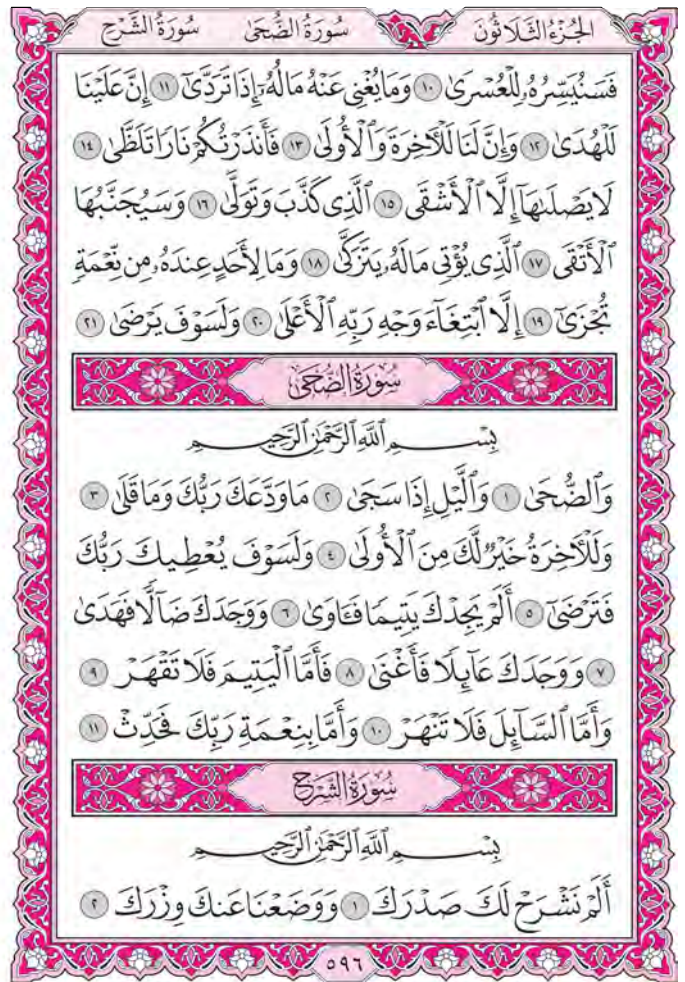 الجُزْءُ الثَّلَاثُونَ سُورَةُ الضُّحَىٰ سُورَةُ الشَّرْحِ
فَسَنُيَسِّرُهُۥ لِلۡعُسۡرَىٰ ١٠ وَمَا يُغۡنِي عَنۡهُ مَالُهُۥٓ إِذَا تَرَدَّىٰٓ ١١ إِنَّ عَلَيۡنَا
لَلۡهُدَىٰ ١٢ وَإِنَّ لَنَا لَلۡأٓخِرَةَ وَٱلۡأُولَىٰ ١٣ فَأَنذَرۡتُكُمۡ نَارٗا تَلَظَّىٰ ١٤
لَا يَصۡلَىٰهَآ إِلَّا ٱلۡأَشۡقَى ١٥ ٱلَّذِي كَذَّبَ وَتَوَلَّىٰ ١٦ وَسَيُجَنَّبُهَا
ٱلۡأَتۡقَى ١٧ ٱلَّذِي يُؤۡتِي مَالَهُۥ يَتَزَكَّىٰ ١٨ وَمَا لِأَحَدٍ عِندَهُۥ مِن نِّعۡمَةٖ
تُجۡزَىٰٓ ١٩ إِلَّا ٱبۡتِغَآءَ وَجۡهِ رَبِّهِ ٱلۡأَعۡلَىٰ ٢٠ وَلَسَوۡفَ يَرۡضَىٰ ٢١
سُورَةُ الضُّحَىٰ
بِسۡمِ ٱللَّهِ ٱلرَّحۡمَٰنِ ٱلرَّحِيمِ
وَٱلضُّحَىٰ ١ وَٱلَّيۡلِ إِذَا سَجَىٰ ٢ مَا وَدَّعَكَ رَبُّكَ وَمَا قَلَىٰ ٣
وَلَلۡأٓخِرَةُ خَيۡرٞ لَّكَ مِنَ ٱلۡأُولَىٰ ٤ وَلَسَوۡفَ يُعۡطِيكَ رَبُّكَ
فَتَرۡضَىٰٓ ٥ أَلَمۡ يَجِدۡكَ يَتِيمٗا فَـَٔاوَىٰ ٦ وَوَجَدَكَ ضَآلّٗا فَهَدَىٰ
٧ وَوَجَدَكَ عَآئِلٗا فَأَغۡنَىٰ ٨ فَأَمَّا ٱلۡيَتِيمَ فَلَا تَقۡهَرۡ ٩
وَأَمَّا ٱلسَّآئِلَ فَلَا تَنۡهَرۡ ١٠ وَأَمَّا بِنِعۡمَةِ رَبِّكَ فَحَدِّثۡ ١١
سُورَةُ الشَّرْحِ
بِسۡمِ ٱللَّهِ ٱلرَّحۡمَٰنِ ٱلرَّحِيمِ
أَلَمۡ نَشۡرَحۡ لَكَ صَدۡرَكَ ١ وَوَضَعۡنَا عَنكَ وِزۡرَكَ ٢
٥٩٦